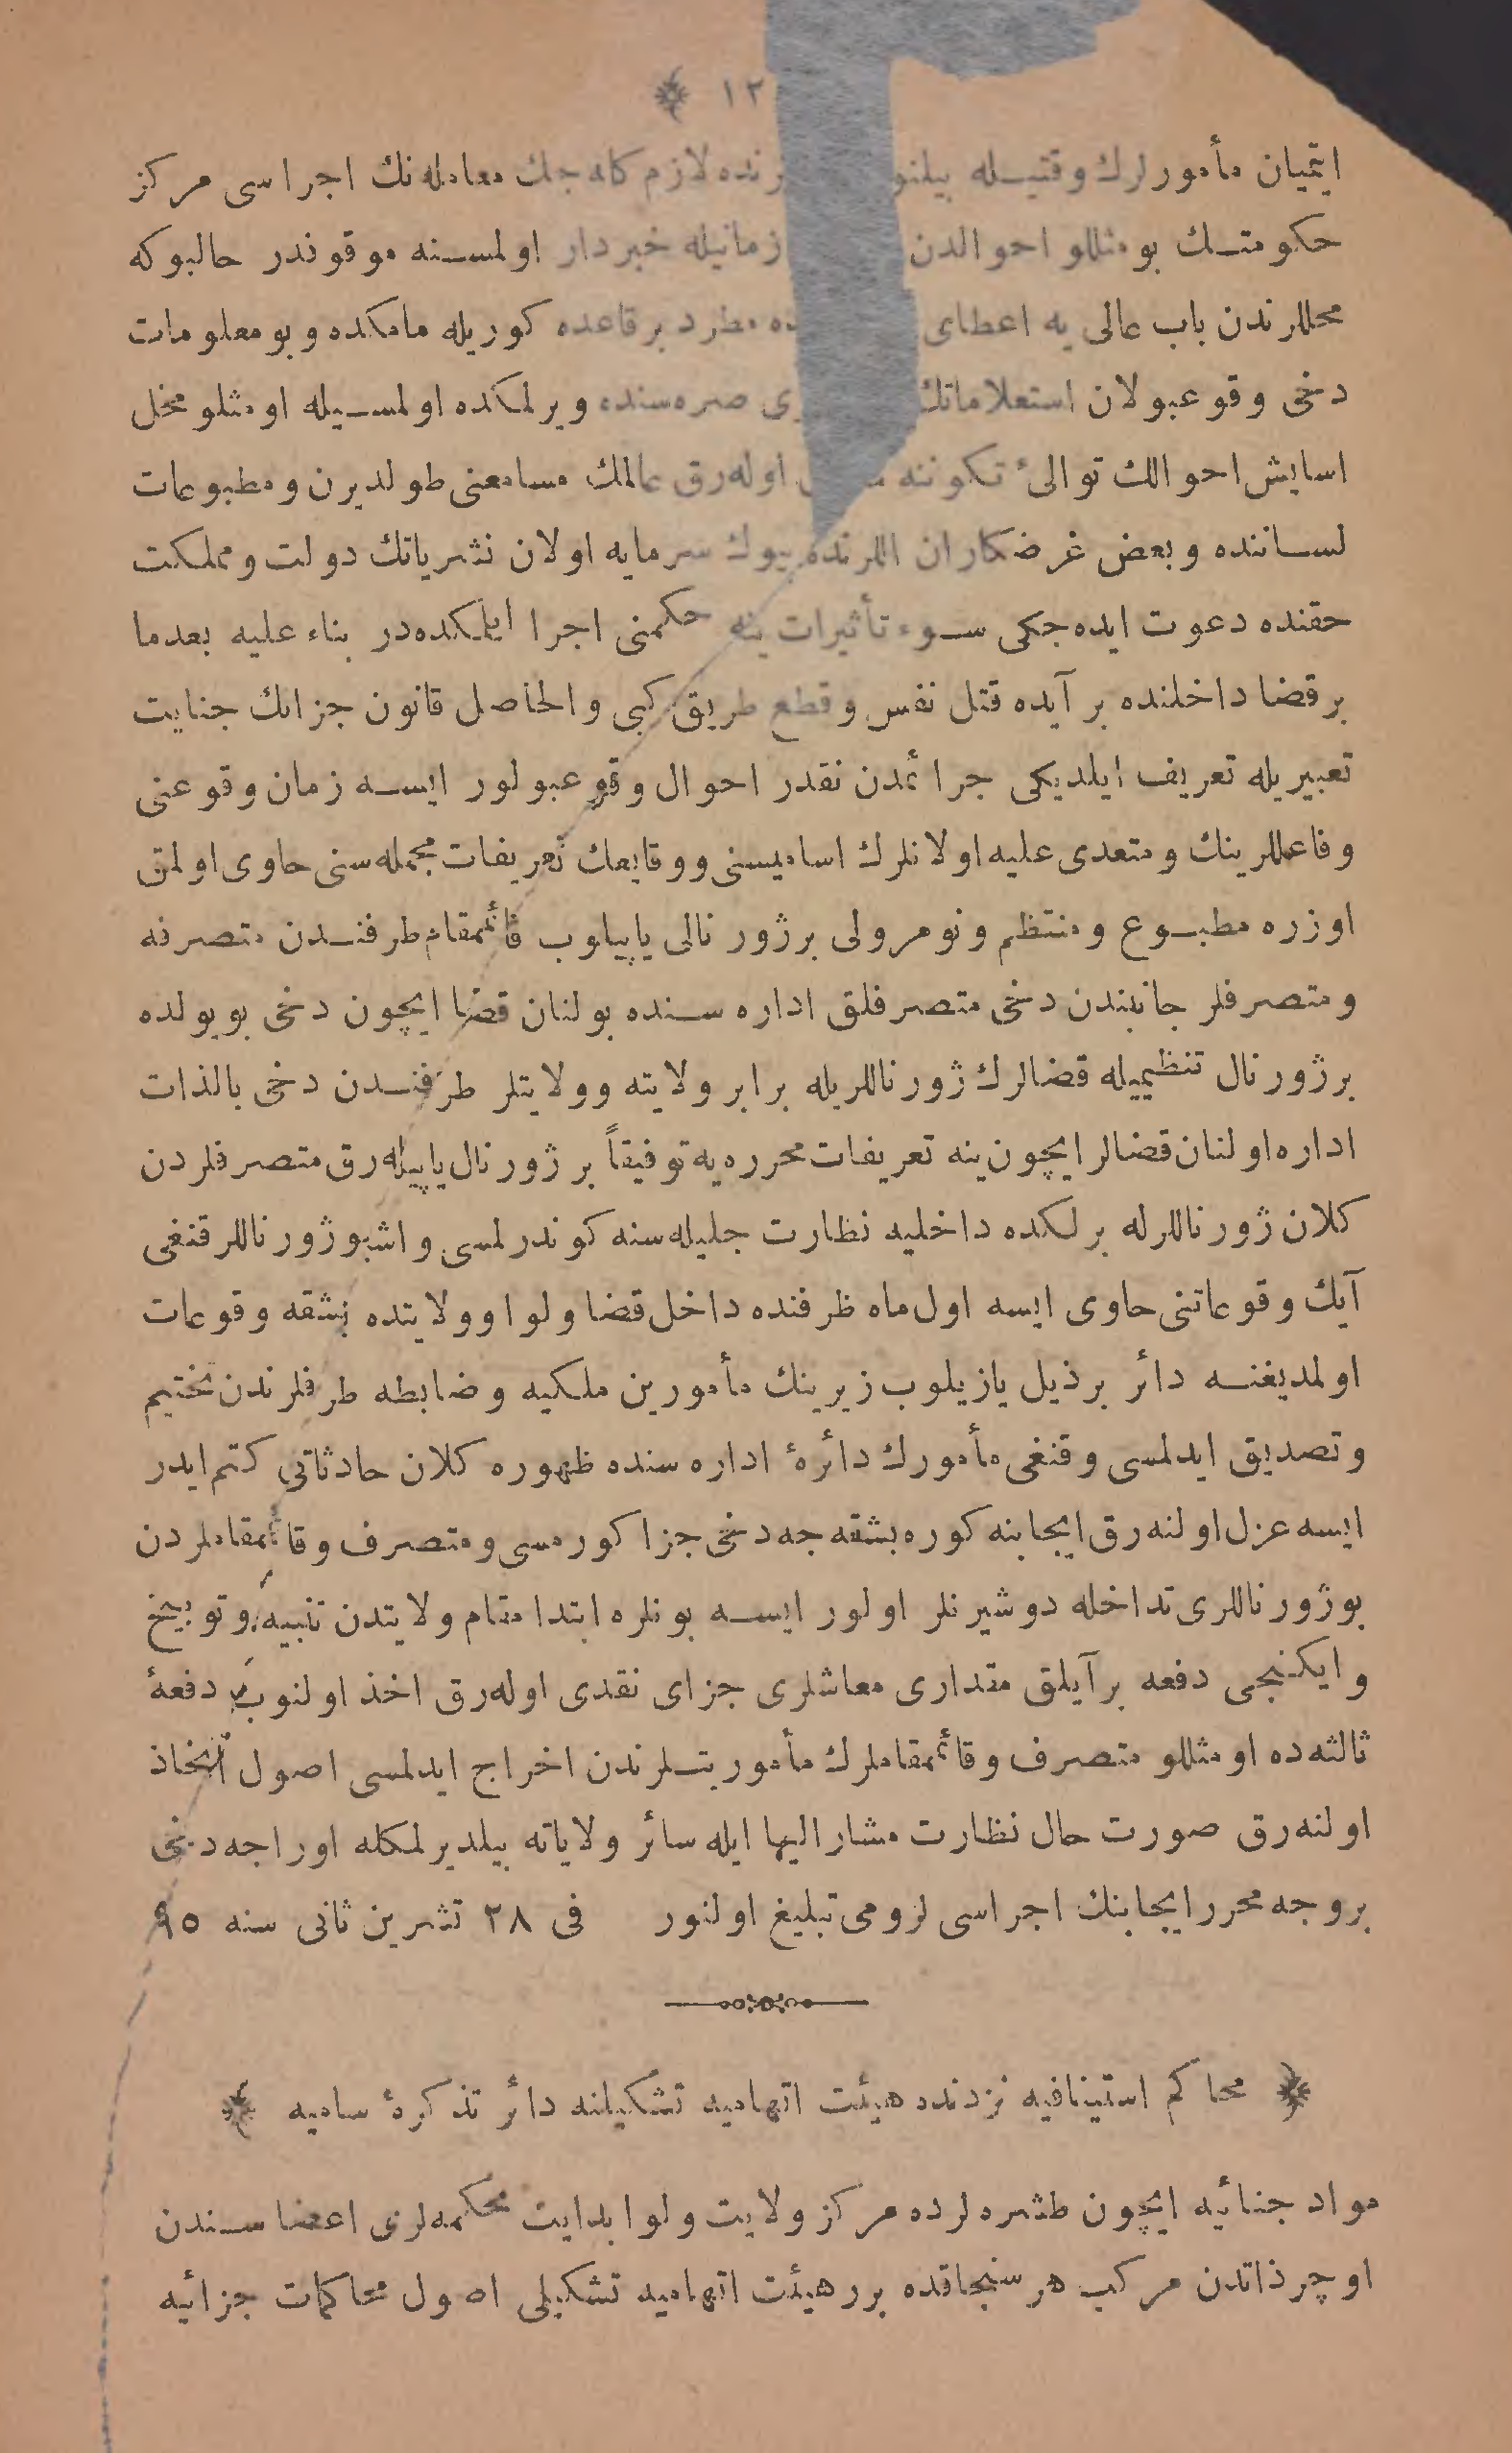 ١٢
ایتمیان مأمورلرك وقتیله بیلنو رنده لازم كله جك معامله نك اجراسی مركز
حكومتك بو مثللو احوالدن زمانیله خبردار اولمسنه موقوفدر حالبوكه
محللرندن باب عالی یه اعطای ده مطرد برقاعده كوریله مامكده و بو معلومات
دخی وقوعبولان استعلاماتك ی صره سنده ویرلمكده اولمسیله او مثلو مخل
اسایش احوالك توالئ تكوننه اوله رق عالمك مسامعنی طولدیرن و مطبوعات
لساننده و بعض غرضكاران اللرنده بیوك سرمایه اولان نشریاتك دولت و مملكت
حقنده دعوت ایده جكی سوء تأثیرات ینه حكمنی اجرا ایلمكده در بناء علیه بعدما
بر قضا داخلنده بر آیده قتل نفس و قطع طریق كبی والحاصل قانون جزانك جنایت
تعبیریله تعریف ایلدیكی جرائمدن نقدر احوال وقوعبولور ایسه زمان وقوعنی
وفاعللرینك و متعدی علیه اولانلرك اسامیسنی ووقایعك تعریفات مجمله سنی حاوی اولمق
اوزره مطبوع و منتظم و نومرولی بر ژورنالی یاپیلوب قائممقام طرفندن متصرفه
و متصرفلر جانبندن دخی متصرفلق اداره سنده بولنان قضا ایچون دخی بو یولده
بر ژورنال تنظیمیله قضالرك ژورناللریله برابر ولایته وولایتلر طرفندن دخی بالذات
اداره اولنان قضالر ایچون ینه تعریفات محرره یه توفیقاً بر ژورنال یاپیله رق متصرفلردن
كلان ژورناللرله برلكده داخلیه نظارت جلیله سنه كوندرلمسی و اشبو ژورناللر قنغی
آیك وقوعاتنی حاوی ایسه اول ماه ظرفنده داخل قضا و لوا وولایتده بشقه وقوعات
اولمدیغنه دائر بر ذیل یازیلوب زیرینك مأمورین ملكیه و ضابطه طرفلرندن تختیم
و تصدیق ایدلمسی و قنغی مأمورك دائرۀ اداره سنده ظهوره كلان حادثاتی كتم ایدر
ایسه عزل اولنه رق ایجابنه كوره بشقه جه دخی جزا كورمسی و متصرف و قائممقاملردن
بو ژورناللری تداخله دوشیرنلر اولور ایسه بونلره ابتدا مقام ولایتدن تنبیه و توبیخ
و ایكنجی دفعه بر آیلق مقداری معاشلری جزای نقدی اوله رق اخذ اولنوب دفعۀ
ثالثه ده او مثللو متصرف و قائممقاملرك مأموریتلرندن اخراج ایدلمسی اصول اتخاذ
اولنه رق صورت حال نظارت مشار الیها ایله سائر ولایاته بیلدیرلمكله اوراجه دخی
بروجه محرر ایجابنك اجراسی لزومی تبلیغ اولنور فی ٢٨ تشرین ثانی سنه ٩٥
محاكم استینافیه نزدنده هیئت اتهامیه تشكیلنه دائر تذكرۀ سامیه
مواد جنائیه ایچون طشره لرده مركز ولایت و لوا بدایت محكمه لری اعضا سندن
اوچر ذاتدن مركب هر سنجاقده برر هیئت اتهامیه تشكیلی اصول محاكمات جزائیه